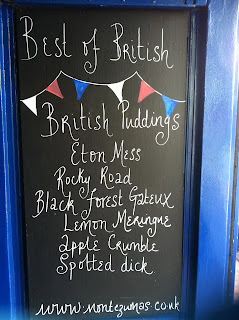 Best of British
British Puddings
Eton Mess
Rocky Road
Black forest Gateux
Lemon Meringue
apple Crumble
Spotted dick
www.montezumas.co.uk